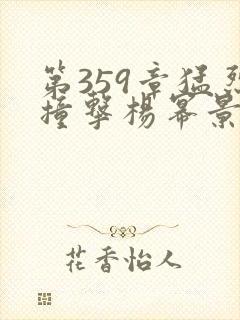 第359章猛烈
撞擊楊幂景
花香怡人